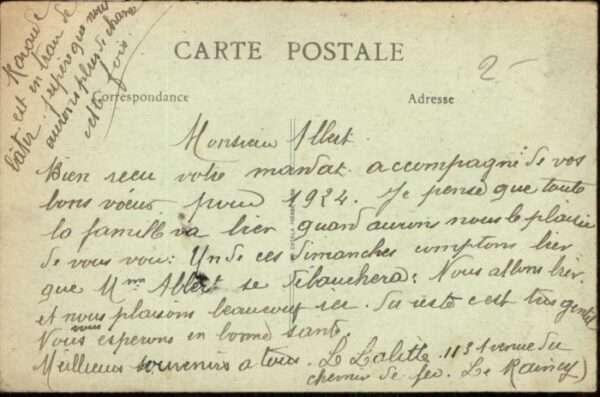 CARTE POSTALE
2-
Correspondance
Adresse
est en train de
bâtir. J'espère que nous
aurons plus de chance
cette fois.
Monsieur Albert.
Bien recu votre mandat. accompagné de vos
bons vœux pour 1924. Je pense que toute
la famille va bien quand aurons nous le plaisir
de vous voir: Un de ces dimanches comptons bien
que Mme Albert se débauchera: Nous allons bien.
et nous plaisons beaucoup ici. Du reste c'est très gentil
Nous vous esperons en bonne sante.
Meilleurs souvenirs a tous. 113 Avenue du
chemin de fer. Le Raincy)